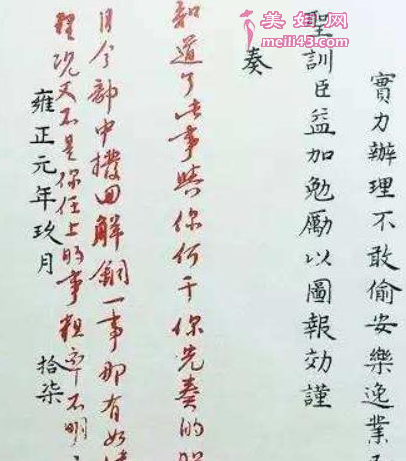 美妞网
meili43.com
實力辦理不敢偷安樂逸業
聖訓臣益加勉厲以圖報効謹
奏
知道了此事與你何干你先奏的
月令部中撥回解銅一事那有如
理況又不是你任上的事粗率不明
雍正元年玖月 拾柒